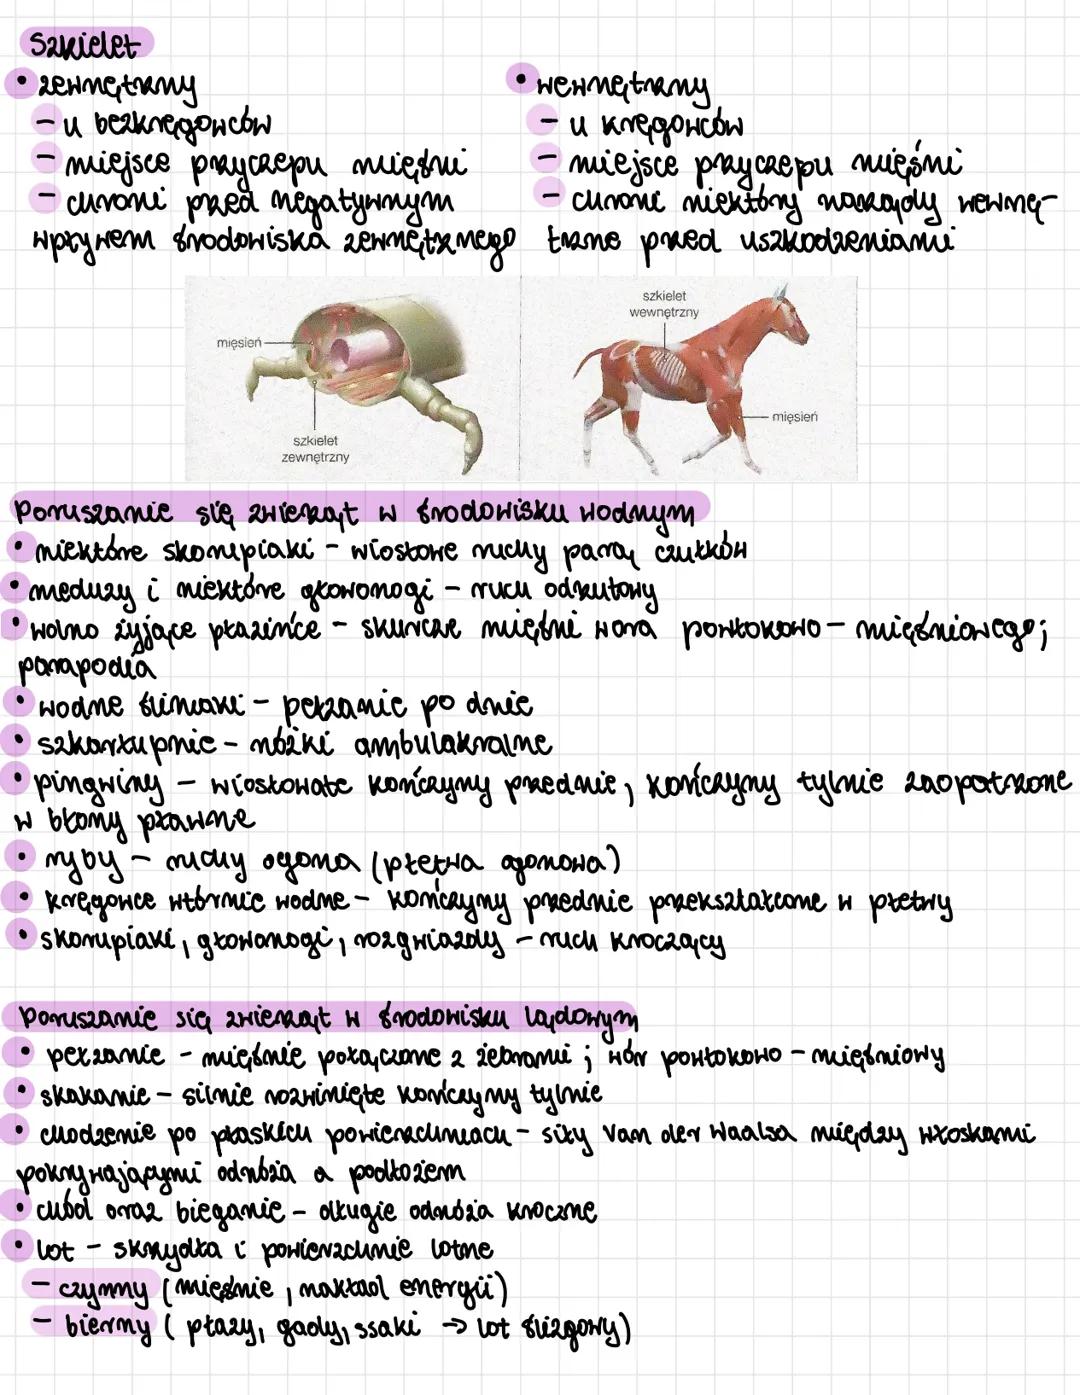 Szkielet
• zewnętrzny
- u bezkręgowców
- miejsce przyczepu mięśni
- chroni przed negatywnym
wpływem środowiska zewnętrznego
• wewnętrzny
- u kręgowców
- miejsce przyczepu mięśni
- chroni niektóry narządy wewnę-
trzne przed uszkodzeniami
mięsień
szkielet
zewnętrzny
szkielet
wewnętrzny
mięsień
Poruszanie się zwierząt w środowisku wodnym
• niektóre skorupiaki - wiosłowe ruchy parą czułków
• meduzy i niektóre głowonogi - ruch odrzutowy
• wolno żyjące płazińce - skurcze mięśni wora powłokowo - mięśniowego;
parapodia
• wodne ślimaki - pełzanie po dnie
• szkarłupnie - nóżki ambulakralne
• pingwiny - wiosłowate kończyny przednie, kończyny tylnie zaopatrzone
w błony pławne
• ryby - ruchy ogona (płetwa ogonowa)
• kręgowce wtórnie wodne - kończyny przednie przekształcone w płetwy
• skorupiaki, głowonogi, rozgwiazdy - ruch kroczący
Poruszanie się zwierząt w środowisku lądowym
• pełzanie - mięśnie połączone z żebrami; wór powłokowo - mięśniowy
• skakanie - silnie rozwinięte kończyny tylnie
• chodzenie po płaskich powierzchniach - siły Van der Waalsa między włoskami
pokrywającymi odnóża a podłożem
• chód oraz bieganie - długie odnóża kroczne
• lot - skrzydła i powierzchnie lotne
- czynny (mięśnie, nakład energii)
- bierny (płazy, gady, ssaki → lot ślizgowy)